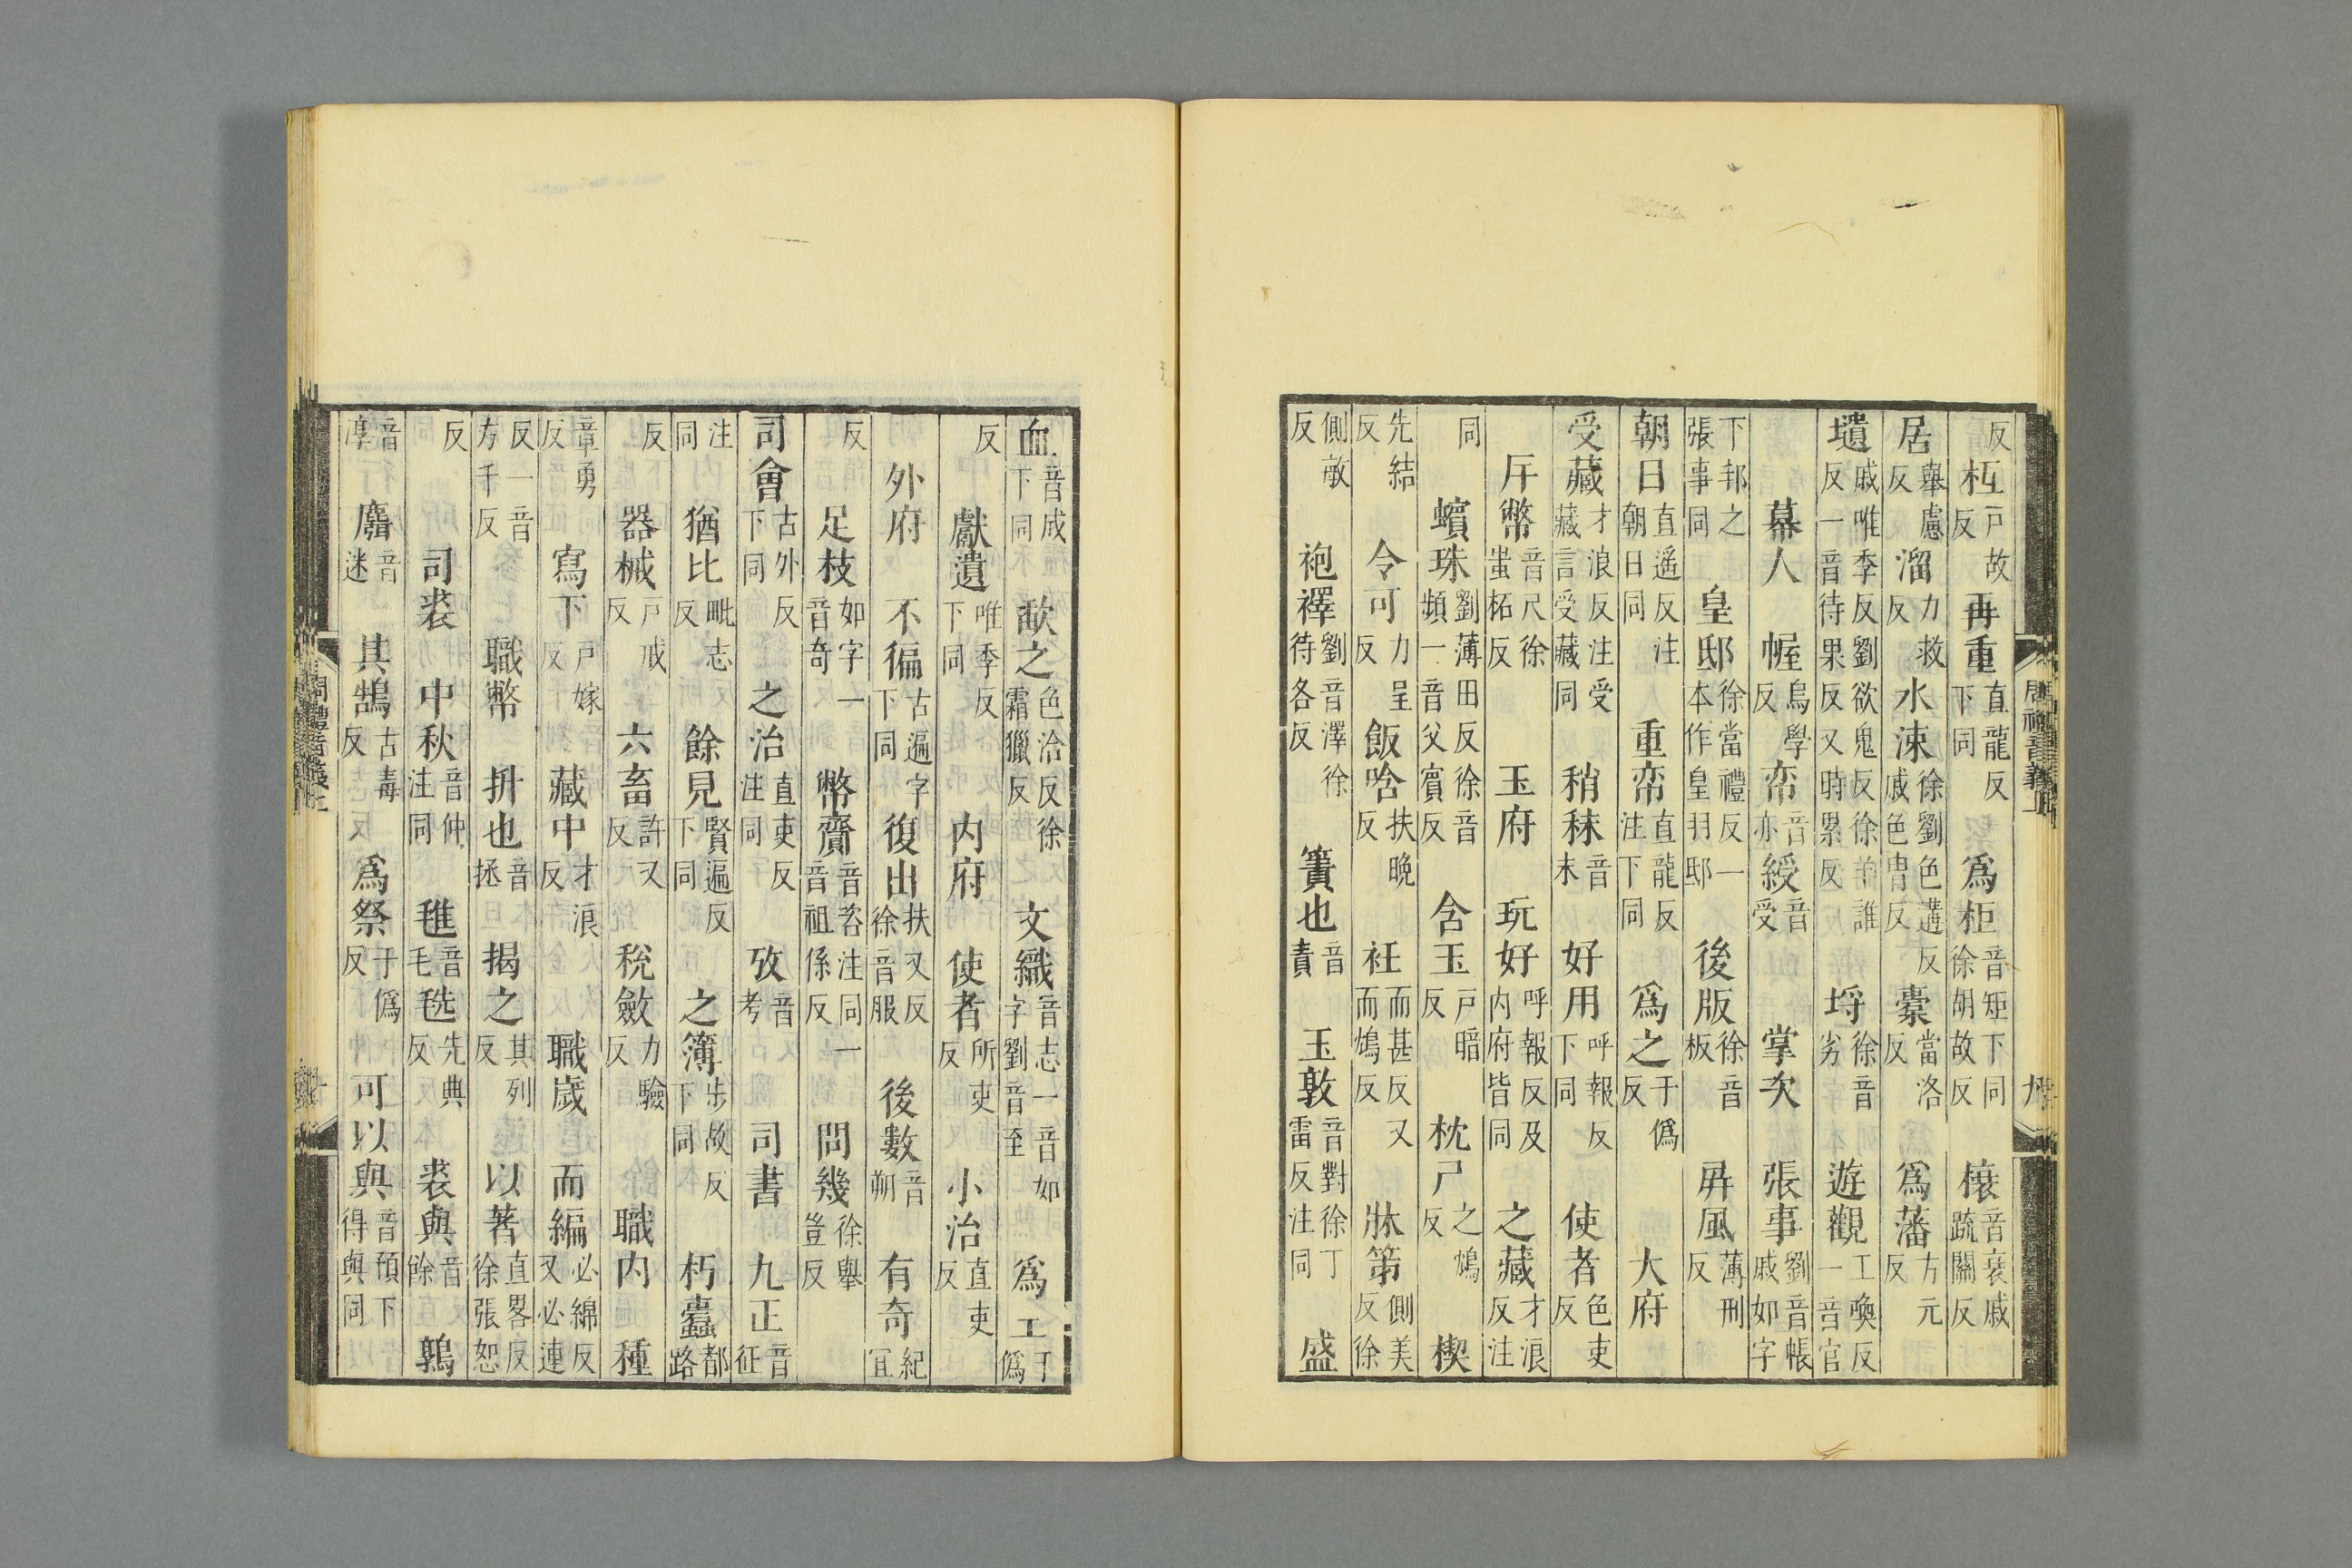 反枑戶故反再重直龍反下同爲柜音矩下同徐胡故反榱音衰戚䟽關反
居舉慮反溜力救反水涑徐劉色遘反戚色冑反櫜當洛反爲藩方元反
壝戚唯季反劉欲鬼反徐羊誰反一音待果反又時累反埒徐音劣遊觀工喚反一音官
幕人幄烏學反帟音亦綬音受掌次張事劉音帳戚如字
下邦之張事同皇邸徐當禮反一本作皇羽邸後版徐音板屛風薄刑反
朝日直遥反注朝日同重帟直龍反注下同爲之于僞反大府
受藏才浪反注受藏言受藏同稍秣音末好用呼報反下同使者色吏反
斥幣音尺徐蚩柘反玉府玩好呼報反及内府皆同之藏才浪反注
同蠙珠劉薄田反徐音頻一音父賓反含玉戶暗反枕尸之鴆反楔
先結反令可力呈反飯唅扶晚反衽而甚反又而鴆反牀笫側美反徐
側敏反袍襗劉音澤徐待各反簀也音責玉敦音對徐丁雷反注同盛
周禮音義上 九
血音成下同歃之色洽反徐霜獵反文織音志一音如字劉音至爲王于僞
反獻遺唯季反下同内府使者所吏反小治直吏反
外府不徧古遍字下同復出扶又反徐音服後數音朔有奇紀宜
反足枝如字一音奇幣齎音咨注同一音祖係反問幾徐舉豈反
司會古外反下同之治直吏反注同攷音考司書九正音征
注同猶比毗志反餘見賢遍反下同之簿步故反下同朽蠹都路
反器械戶戒反六畜許又反稅斂力驗反職内種
章勇反寫下戶嫁反藏中才浪反職歲而編必綿反又必連
反一音方千反職幣拚也音拯揭之其列反以著直畧反徐張恕
反司裘中秋音仲注同毨音毛毨先典反裘與音餘鶉
音淳麛音迷其鵠古毒反爲祭于僞反可以與音預下得與同
周禮音義上 十